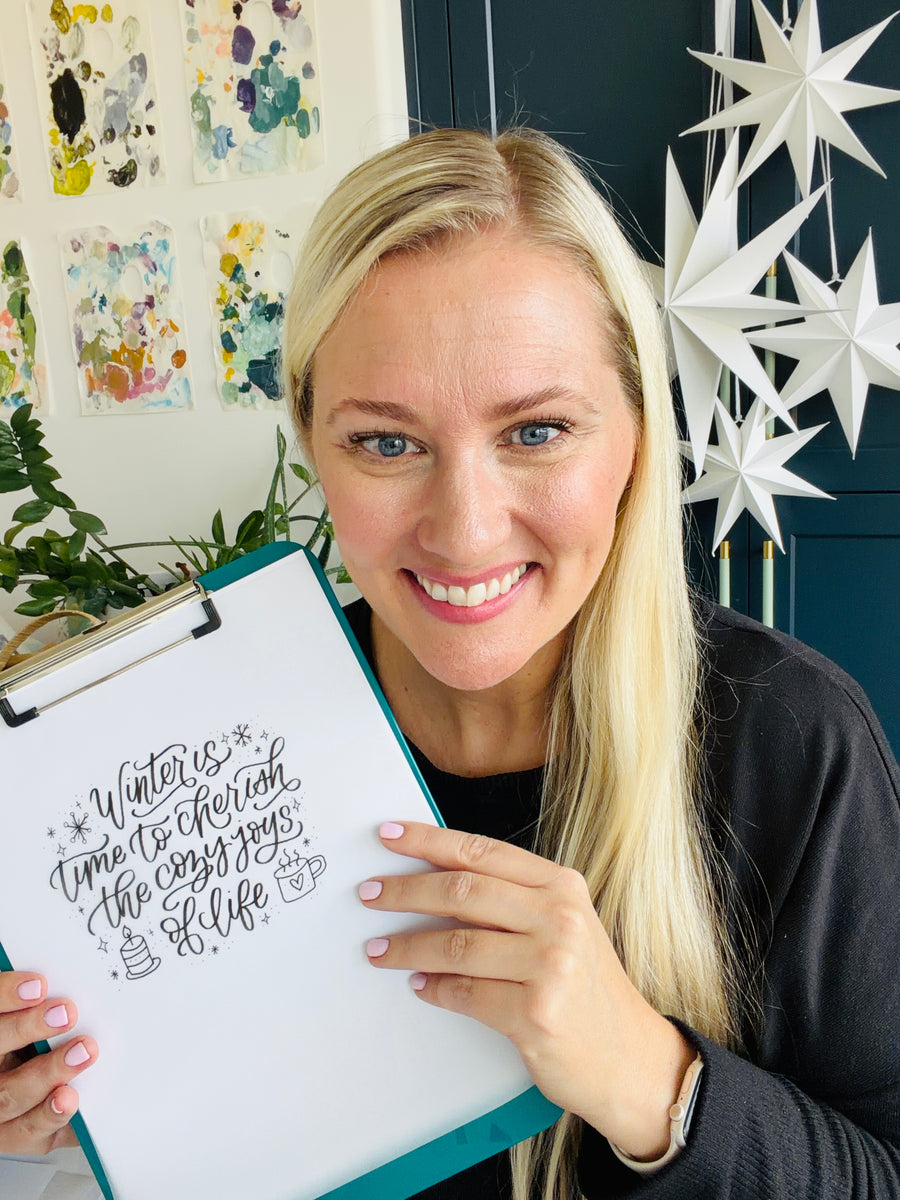 Winter is
time to cherish
the cozy joys
of life